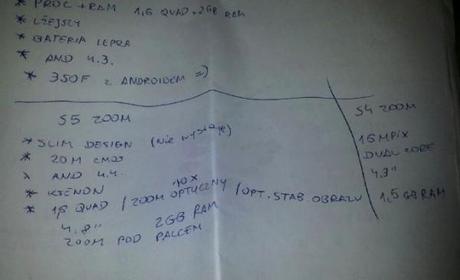 * PROC + RAM 1,6 QUAD + 2GB RAM
* LŻEJSZY
* BATERIA LEPSZA
* AND 4.3.
* 350F z ANDROIDEM =)
S5 ZOOM
* SLIM DESIGN (nie wystaje)
* 20M CMOS
* AND 4.4.
* KSENON
* 1,6 QUAD / 10x ZOOM OPTYCZNY / OPT. STAB OBRAZU
4.8" 2GB RAM
ZOOM POD PALCEM
S4 ZOOM
16MPix
DUAL CORE
4.3"
1,5GB RAM